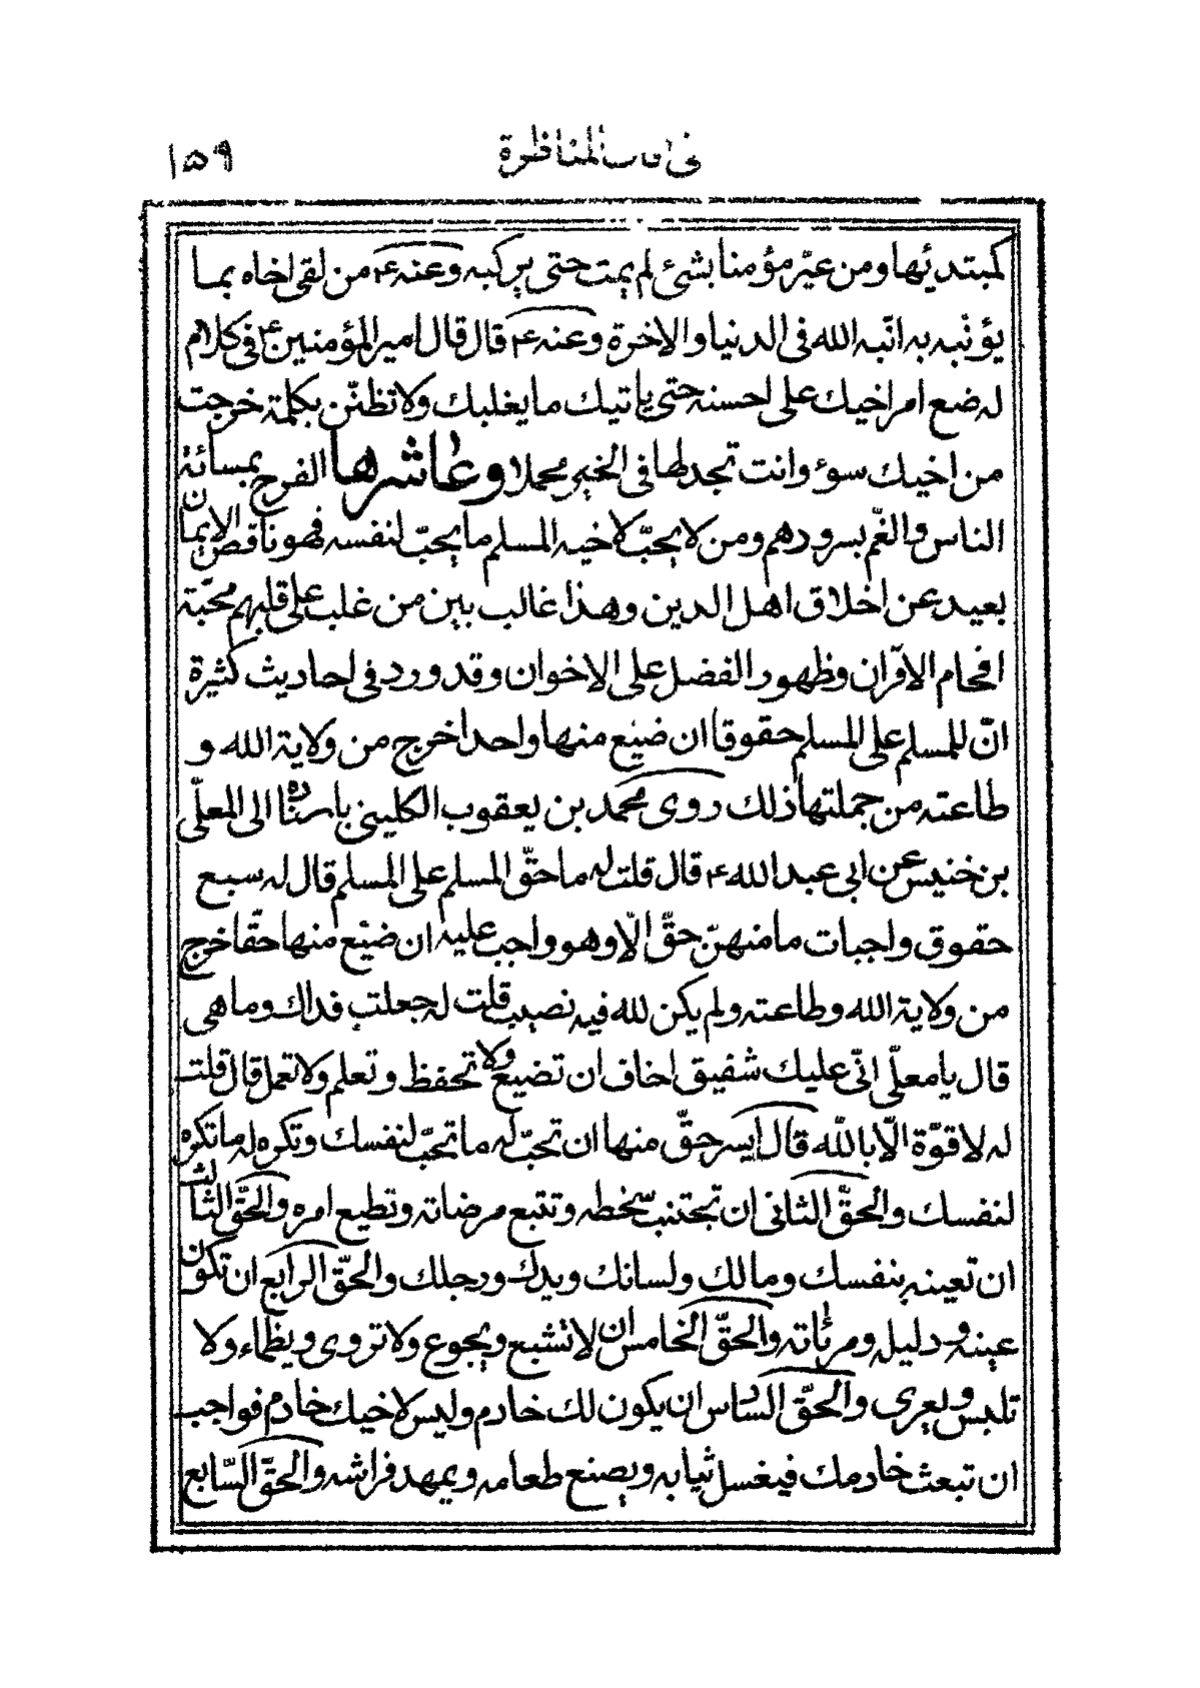 فى اداب المناظرة ١٥٩
كمبتديئها ومن عيّر مؤمنا بشئ لم يمت حتى يركبه وعنه ع من لقى اخاه بما
يؤنّبه به انّبه الله فى الدنيا والاخرة وعنه ع قال قال امير المؤمنين ع فى كلام
له ضع امر اخيك على احسنه حتى ياتيك ما يغلبك ولا تظنّن بكلمة خرجت
من اخيك سوء وانت تجد لها فى الخير محملا وعاشرها الفرح بمسائة
الناس والغّم بسرورهم ومن لا يحبّ لاخيه المسلم ما يحبّ لنفسه فهو ناقص الايمان
بعيد عن اخلاق اهل الدين وهذا غالب بين من غلب على قلبهم محبّة
افحام الاقران وظهور الفضل على الاخوان وقد ورد فى احاديث كثيرة
انّ للمسلم على المسلم حقوقا ان ضيّع منها واحدا خرج من ولاية الله و
طاعته من جملتها ذلك روى محمد بن يعقوب الكلينى باسناده الى المعلّى
بن خنيس عن ابى عبد الله ع قال قلت له ما حقّ المسلم على المسلم قال له سبع
حقوق واجبات ما منهنّ حقّ الّا وهو واجب عليه ان ضيّع منها حقّا خرج
من ولاية الله وطاعته ولم يكن لله فيه نصيب قلت له جعلت فداك وما هى
قال يا معلّى انّى عليك شفيق اخاف ان تضيع ولا تحفظ وتعلم ولا تعمل قال قلت
له لا قوّة الّا بالله قال ايسر حقّ منها ان تحبّ له ما تحبّ لنفسك وتكره له ما تكره
لنفسك والحقّ الثانى ان تجتنب سخطه وتتبع مرضاته وتطيع امره والحقّ الثالث
ان تعينه بنفسك ومالك ولسانك ويدك ورجلك والحقّ الرابع ان تكون
عينه ودليله ومراٰته والحقّ الخامس ان لا تشبع ويجوع ولا تروى ويظماء ولا
تلبس ويعرى والحقّ السادس ان يكون لك خادم وليس لاخيك خادم فواجب
ان تبعث خادمك فيغسل ثيابه ويصنع طعامه ويمهد فراشه والحقّ السّابع